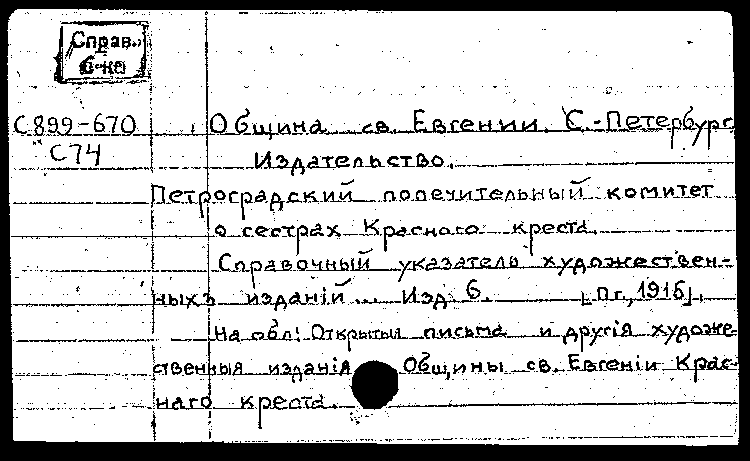 Справ.
б-ка
С899-670
С74
Община св. Евгении. С.-Петербург.
Издательство.
Петроградский попечительный комитет
о сестрах Красного креста.
Справочный указатель художествен-
ныхъ изданій... Изд 6. [Пг., 1915].
На обл: Открытыя письма и другія художе-
ственныя изданія Общины св. Евгеніи Крас-
наго креста.